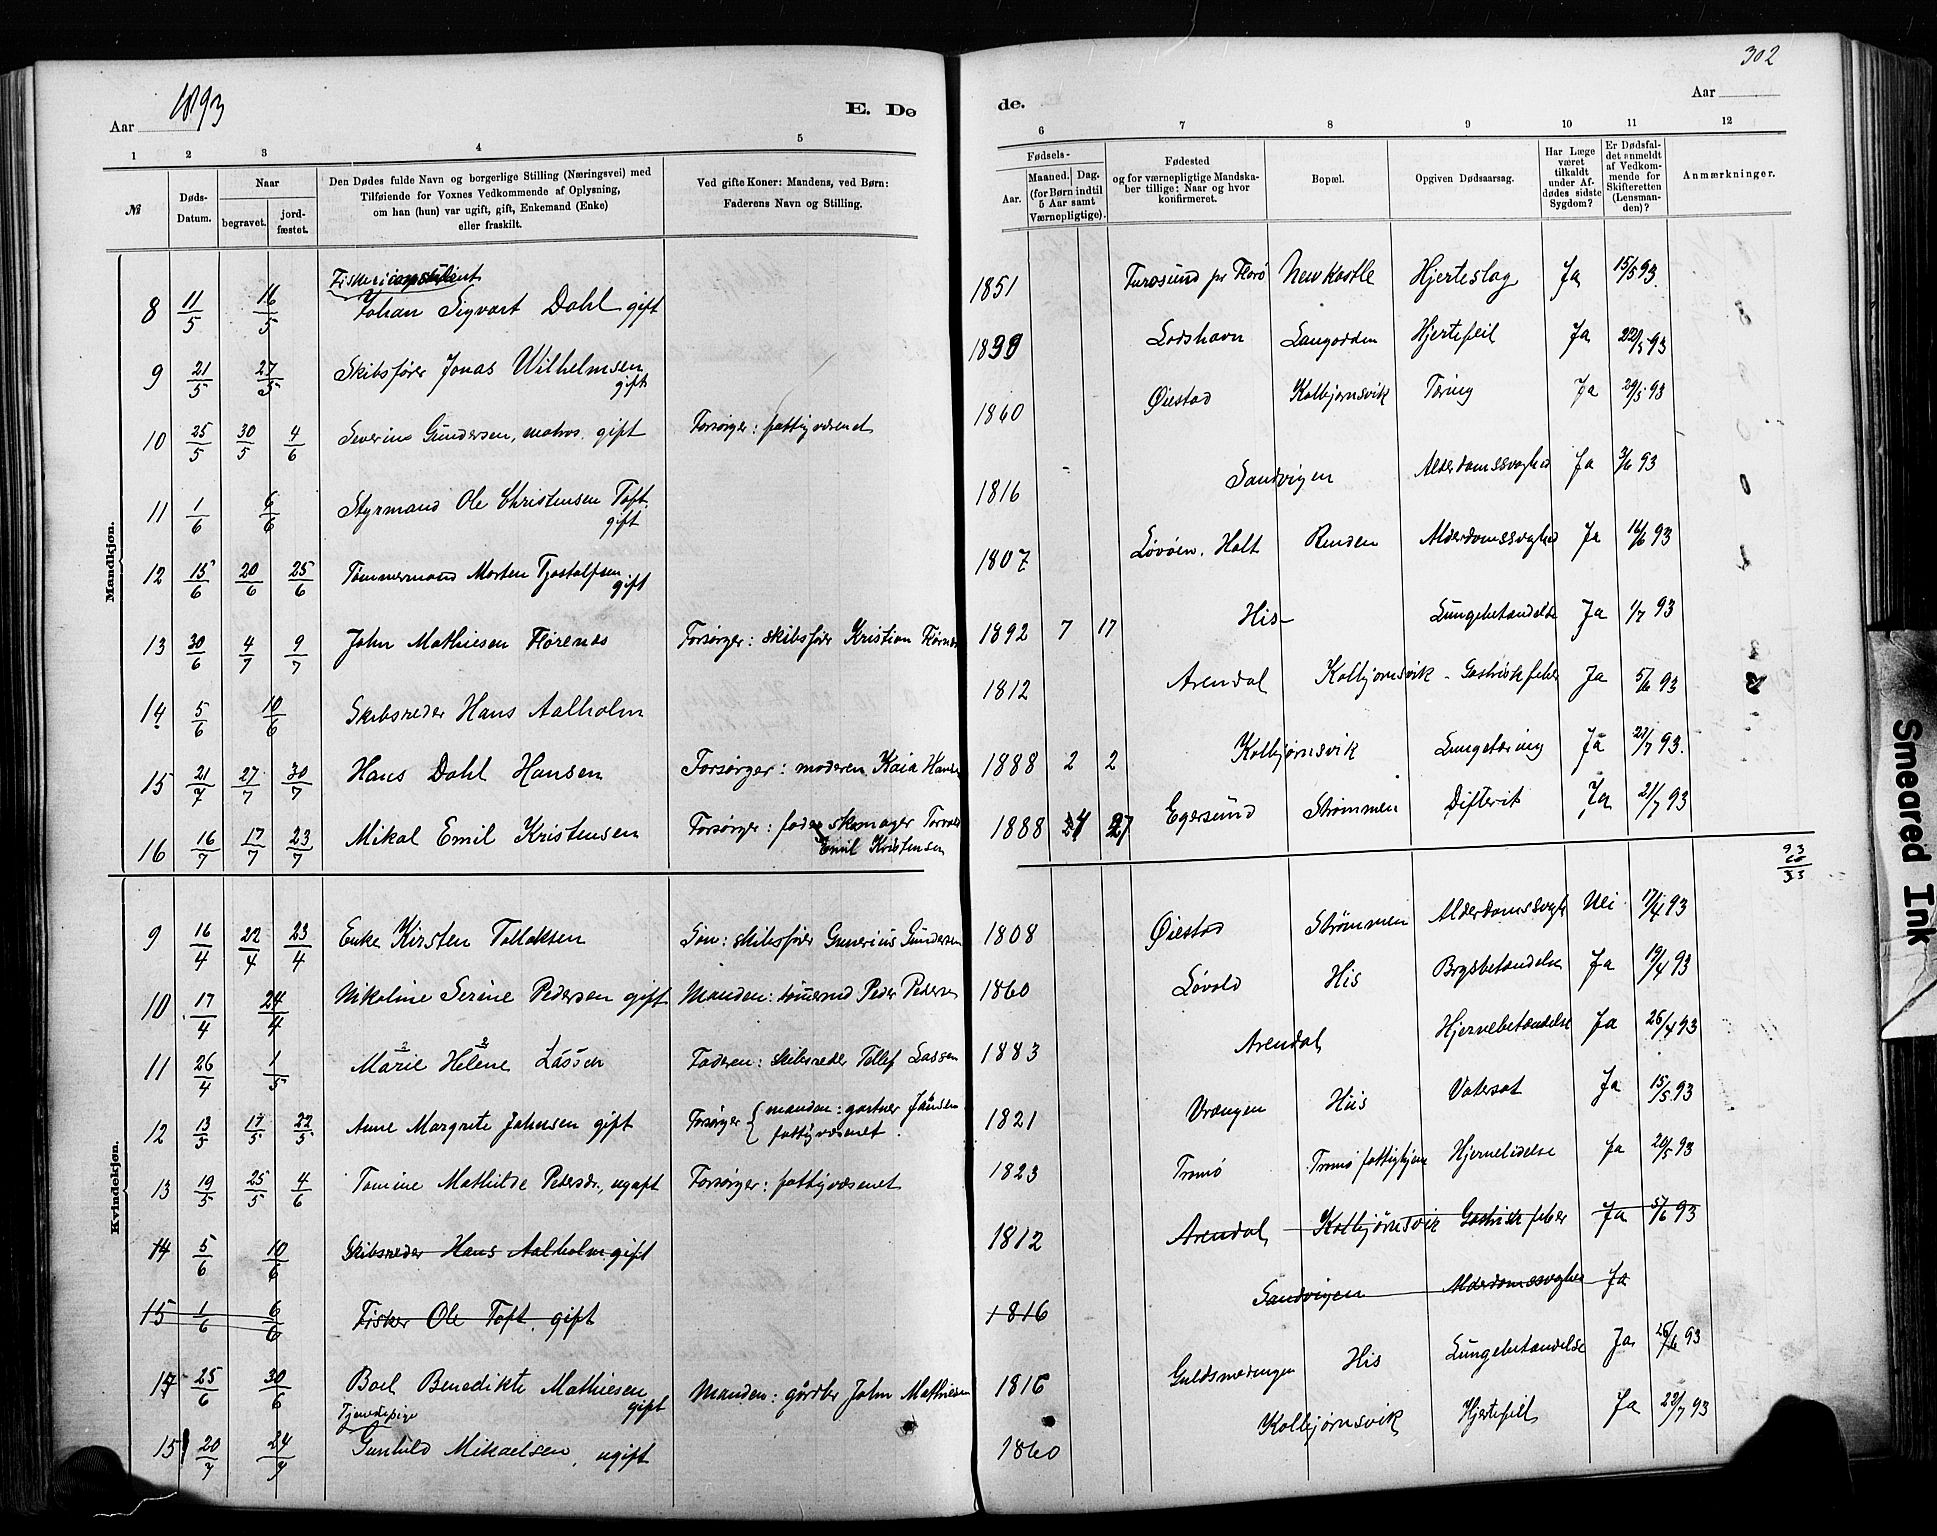 302
Aar 1893
E. Dø
de.
Aar
1 2 3 4 5 6 7 8 9 10 11 12
№
Døds-Datum.
Naar
begravet.
jord-fæstet.
Den Dødes fulde Navn og borgerlige Stilling (Næringsvei) med
Tilføiende for Voxnes Vedkommende af Oplysning,
om han (hun) var ugift, gift, Enkemand (Enke)
eller fraskilt.
Ved gifte Koner: Mandens, ved Børn:
Faderens Navn og Stilling.
Fødsels-
Aar.
Maaned. Dag.
(for Børn indtil
5 Aar samt
Værnepligtige).
Fødested
og for værnepligtige Mandska-
ber tillige: Naar og hvor
konfirmeret.
Bopæl.
Opgiven Dødsaarsag.
Har Læge
været
tilkaldt
under Af-
dødes sidste
Sygdom?
Er Dødsfal-
det anmeldt
af Vedkom-
mende for
Skifteretten
(Lensman-
den)?
Anmærkninger.
Mandkjøn.
8 11/5 16/5 Johan Sigvart Dahl gift 1851 Furøsund pr Florø New Kastle Hjerteslag Ja 15/5 93.
9 21/5 27/5 Skibsfører Jonas Wilhelmsen gift Lodshavn Langodden Hjertefeil Ja 22/5 93
10 25/5 30/5 4/6 Severins Gundersen, matros. gift Forsørger: fattigvæsenet 1860 Øiestad Kolbjørnsvik Tæring Ja 29/5 93
11 1/6 6/6 Styrmand Ole Christensen Toft. gift 1816 Sandvigen Alderdomssvaghed Ja 3/6 93
12 15/6 20/6 25/6 Tømmermand Morten Tjostolfsen gift 1807 Løvøen, Holt Renden Alderdomssvaghed Ja 16/6 93
13 30/6 4/7 9/7 John Mathiesen Flørenæs Forsørger: skibsfører Kristian Flørnæs 1892 7 17 His Lungebetændelse Ja 1/7 93
14 5/6 10/6 Skibsreder Hans Aalholm 1812 Arendal Kolbjørnsvik Gastrisk feber Ja 5/6 93
15 21/7 27/7 30/7 Hans Dahl Hansen Forsørger: moderen Kaia Hansen 1888 2 2 Kolbjørnsvik Lungetæring Ja 22/7 93.
16 16/7 17/7 23/7 Mikal Emil Kristensen Forsørger: fader skomager
Emil Kristensen 1888 4 27 Egersund Strømmen Difterit Ja 21/7 93
93
60
33
Kvindekjøn.
9 16/4 22/4 23/4 Enke Kirsten Tallaksen Søn: skibsfører Gunerius Gundersen 1808 Øiestad Strømmen Alderdomssvagh Nei 17/4 93
10 17/4 24/4 Nikoline Serine Pedersen gift Manden: tømermd Peder Pedersen 1860 Løvold His Brystbetændelse Ja 19/4 93
11 26/4 1/5 Marie Helene Lassen Faderen: skibsreder Tellef Lassen 1883 Arendal Hjernebetændelse Ja 26/4 93
12 13/5 17/5 22/5 Anne Margrete Johnsen gift Forsørger { manden: gartner Jansen
fattigvæsenet. 1821 Vrængen Hiis Vatersot Ja 15/5 93
13 19/5 25/5 4/6 Tomine Mathilde Petersdr., ugift Forsørger: fattigvæsenet 1823 Tromø Tromø fattighjem Hjernelidelse Ja 20/5 93
14 5/6 10/6 Skibsreder Hans Aalholm gift 1812 Arendal Kolbjørnsvik Gastrisk feber Ja 5/6 93
15 1/6 6/6 Fisker Ole Toft, gift 1816 Sandvigen Alderdomssvaghed Ja
17 25/6 30/6 Boel Benedikte Mathiesen gift Manden: gårdbr John Mathiesen 1816 Guldsmedengen His Lungebetændelse Ja 26/6 93
Tjenestepige
15 20/7 24/7 Gunhild Mikaelsen, ugift 1860 Kolbjørnsvik Hjertefeil Ja 22/7 93
Smeared Ink